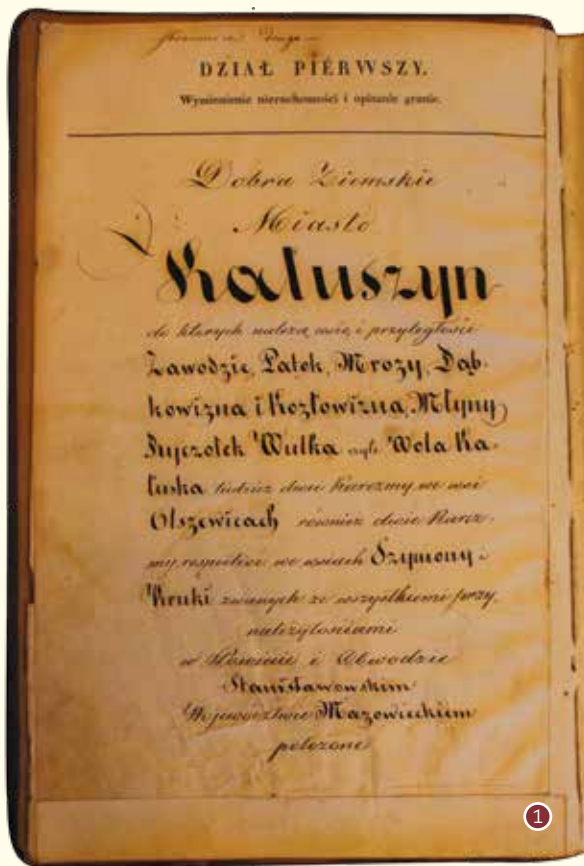 DZIAŁ PIÉRWSZY.
Wymienienie nieruchomości i opisanie granic.
Dobra Ziemskie
Miasto
Kałuszyn
do których należą wsie i przyległości
Zawodzie, Patok, Mrozy, Dąb-
kowizna i Kozłowizna, Młyny
Wulka czyli Wola Ka-
łuska tudzież dwie Karczmy we wsi
Olszewicach również dwie Karcz-
my respective we wsiach Szymony i
Kruki zwanych ze wszystkiemi przy
należytościami
w Powiecie i Obwodzie
Stanisławowskim
Województwie Mazowieckiem
położone
1